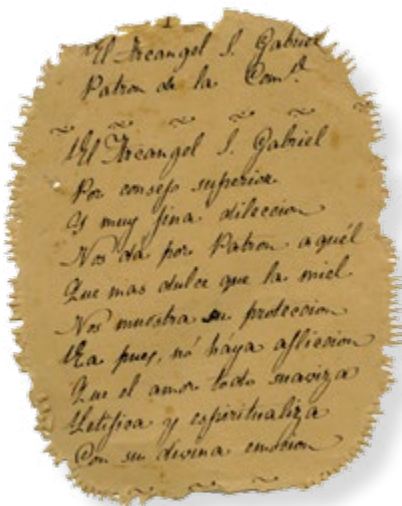 El Arcangel S. Gabriel
Patron de la Com.d
El Arcangel S. Gabriel
Por consejo superior
Y muy fina dileccion
Nos da por Patron aquél
Que mas dulce que la miel
Nos muestra su proteccion
Ea pues, nó háya afliccion
Que el amor todo suaviza
Letifica y espiritualiza
Con su divina emocion